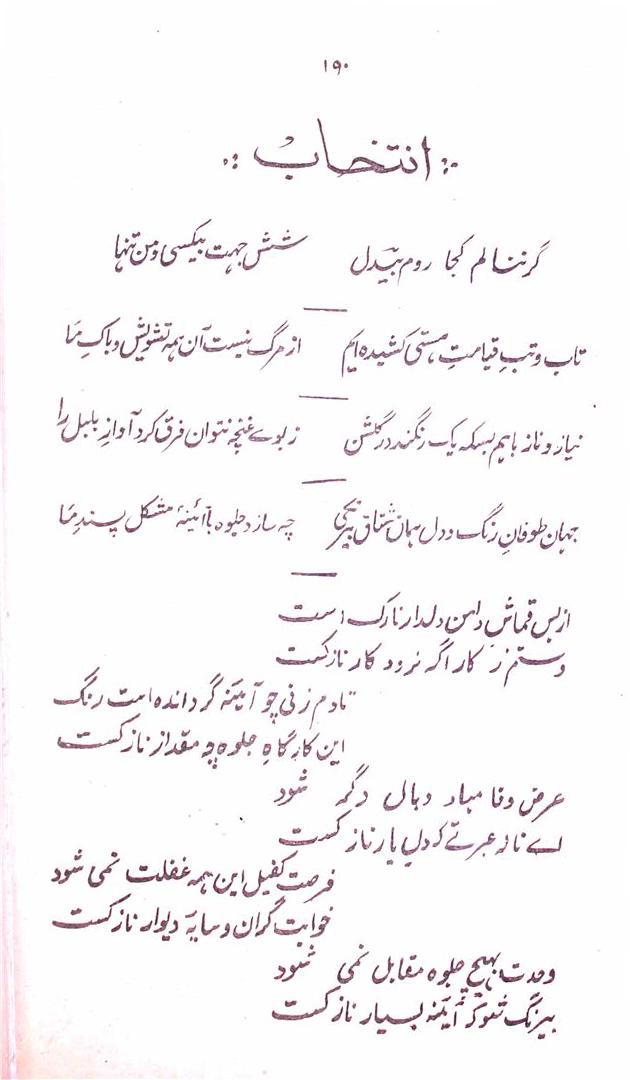 ۱۹۰
انتخاب
گر ننالم کجا روم بیدل شش جہت بیکسی و من تنہا
تاب و تبِ قیامتِ ہستی کشیدہ ایم از مرگ نیست آن ہمہ تشویش و باکِ مَا
نیاز و ناز باہم بسکہ یک رنگند در گلشن ز بوے غنچہ نتوان فرق کرد آوازِ بلبل را
جہان طوفانِ رنگ و دل ہمان مشتاقِ بیرنگی چہ سازد جلوہ با آئینۂ مشکل پسندِ مَا
از بس قماشِ دامنِ دلدار نازک است
دستم ز کار اگر نرود کار نازکست
تا دم زنی چو آئینہ گرداندہ است رنگ
این کارگاہِ جلوہ چہ مقدار نازکست
عرض وفا مباد وبال دگر شود
اے نالہ عبرتے کہ دلِ یار نازکست
فرصت کفیلِ این ہمہ غفلت نمی شود
خوابت گران و سایۂ دیوار نازکست
وحدت بہیچ جلوہ مقابل نمی شود
بیرنگ شو کہ آئنہ بسیار نازکست